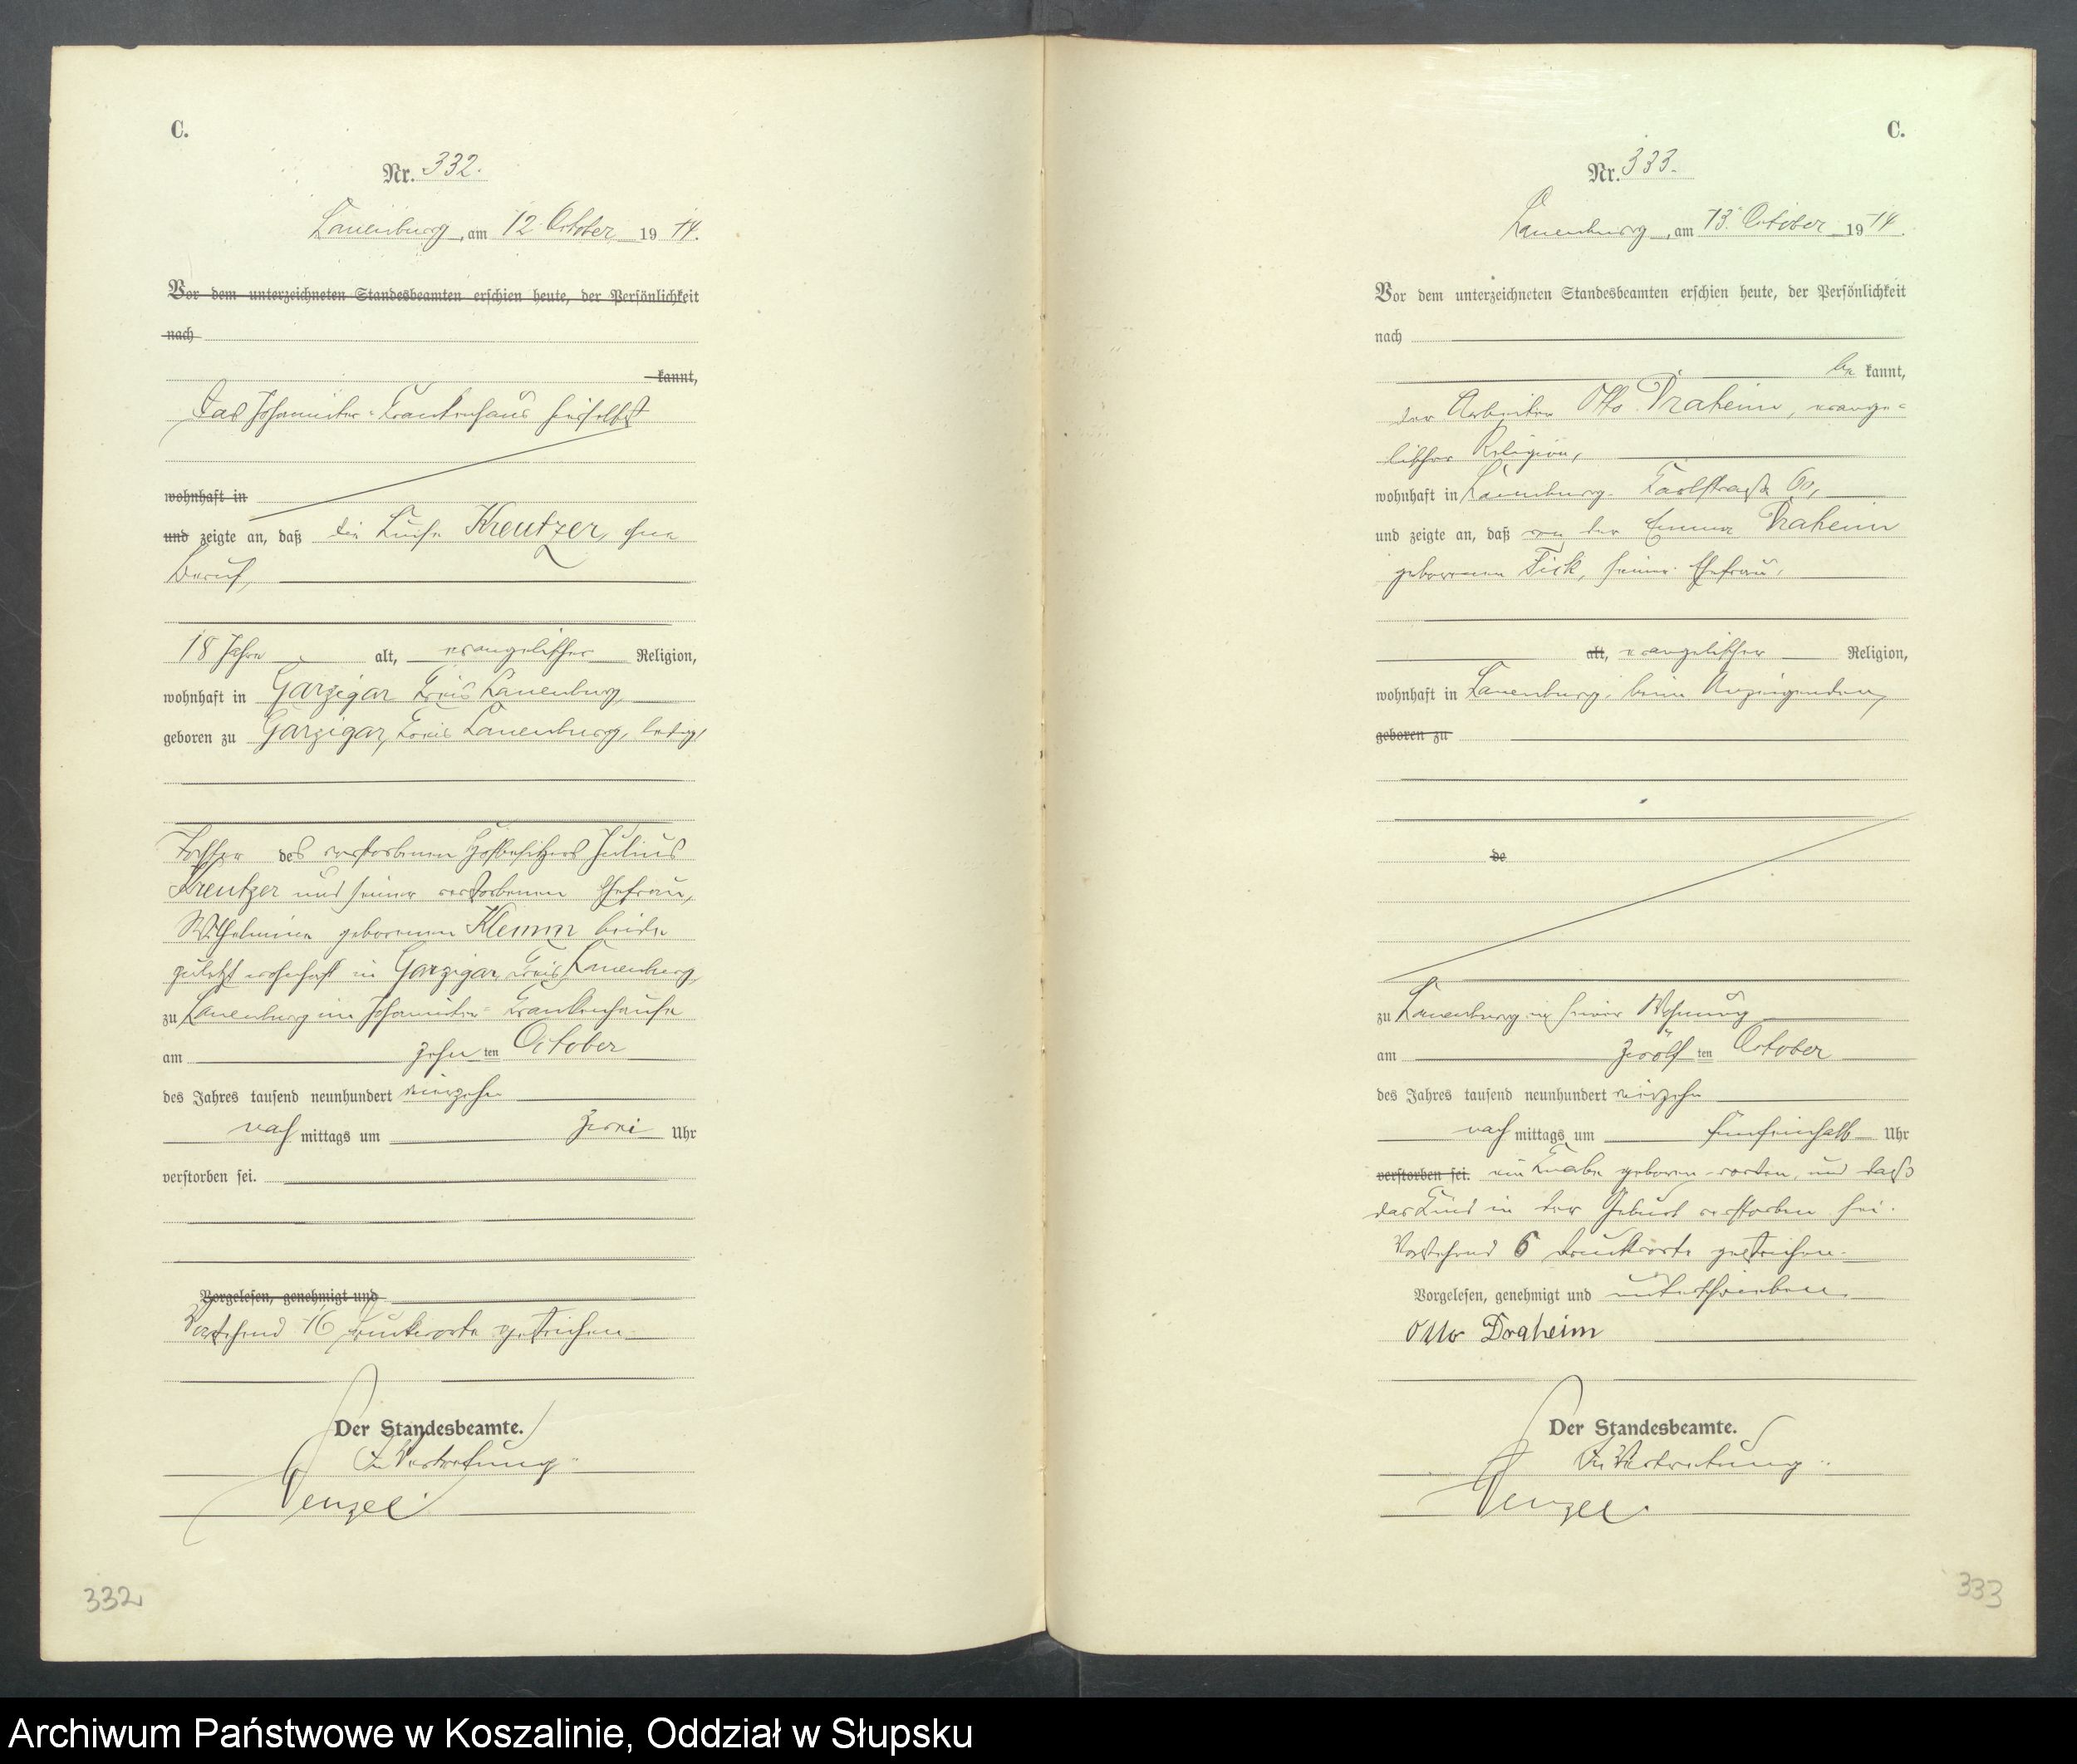 C.
Nr. 332.
Lauenburg, am 12. October 1914.
Vor dem unterzeichneten Standesbeamten erschien heute, der Persönlichkeit
nach
kannt,
Das Johanniter-Krankenhaus hierselbst
wohnhaft in
und zeigte an, daß die Luise Kreutzer, ohne
Beruf,
18 Jahre alt, evangelischer Religion,
wohnhaft in Garzigar Kreis Lauenburg,
geboren zu Garzigar, Kreis Lauenburg, ledig,
Tochter des verstorbenen Hofbesitzers Julius
Kreutzer und seiner verstorbenen Ehefrau,
Wilhelmine geborenen Klemm beide
zuletzt wohnhaft in Garzigar, Kreis Lauenburg,
zu Lauenburg im Johanniter-Krankenhause
am zehnten October
des Jahres tausend neunhundert vierzehn
nachmittags um zwei Uhr
verstorben sei.
Vorgelesen, genehmigt und
Vorstehend 16 Druckworte gestrichen.
Der Standesbeamte.
In Vertretung
Wenzel.
332
C.
Nr. 333.
Lauenburg, am 13. October 1914.
Vor dem unterzeichneten Standesbeamten erschien heute, der Persönlichkeit
nach
be kannt,
der Arbeiter Otto Draheim, evange-
lischer Religion,
wohnhaft in Lauenburg.
und zeigte an, daß von der Emma Draheim
geborenen Fick, seiner Ehefrau,
alt, evangelischer Religion,
wohnhaft in Lauenburg, beim Anzeigenden,
geboren zu
de
zu Lauenburg in seiner Wohnung
am zwölften October
des Jahres tausend neunhundert vierzehn
nachmittags um fünfeinhalb Uhr
verstorben sei. ein Knabe geboren worden, und dass
das Kind in der Geburt verstorben sei.
Vorstehend 6 Druckworte gestrichen.
Vorgelesen, genehmigt und unterschrieben.
Otto Draheim
Der Standesbeamte.
In Vertretung.
Wenzel.
333
Archiwum Państwowe w Koszalinie, Oddział w Słupsku